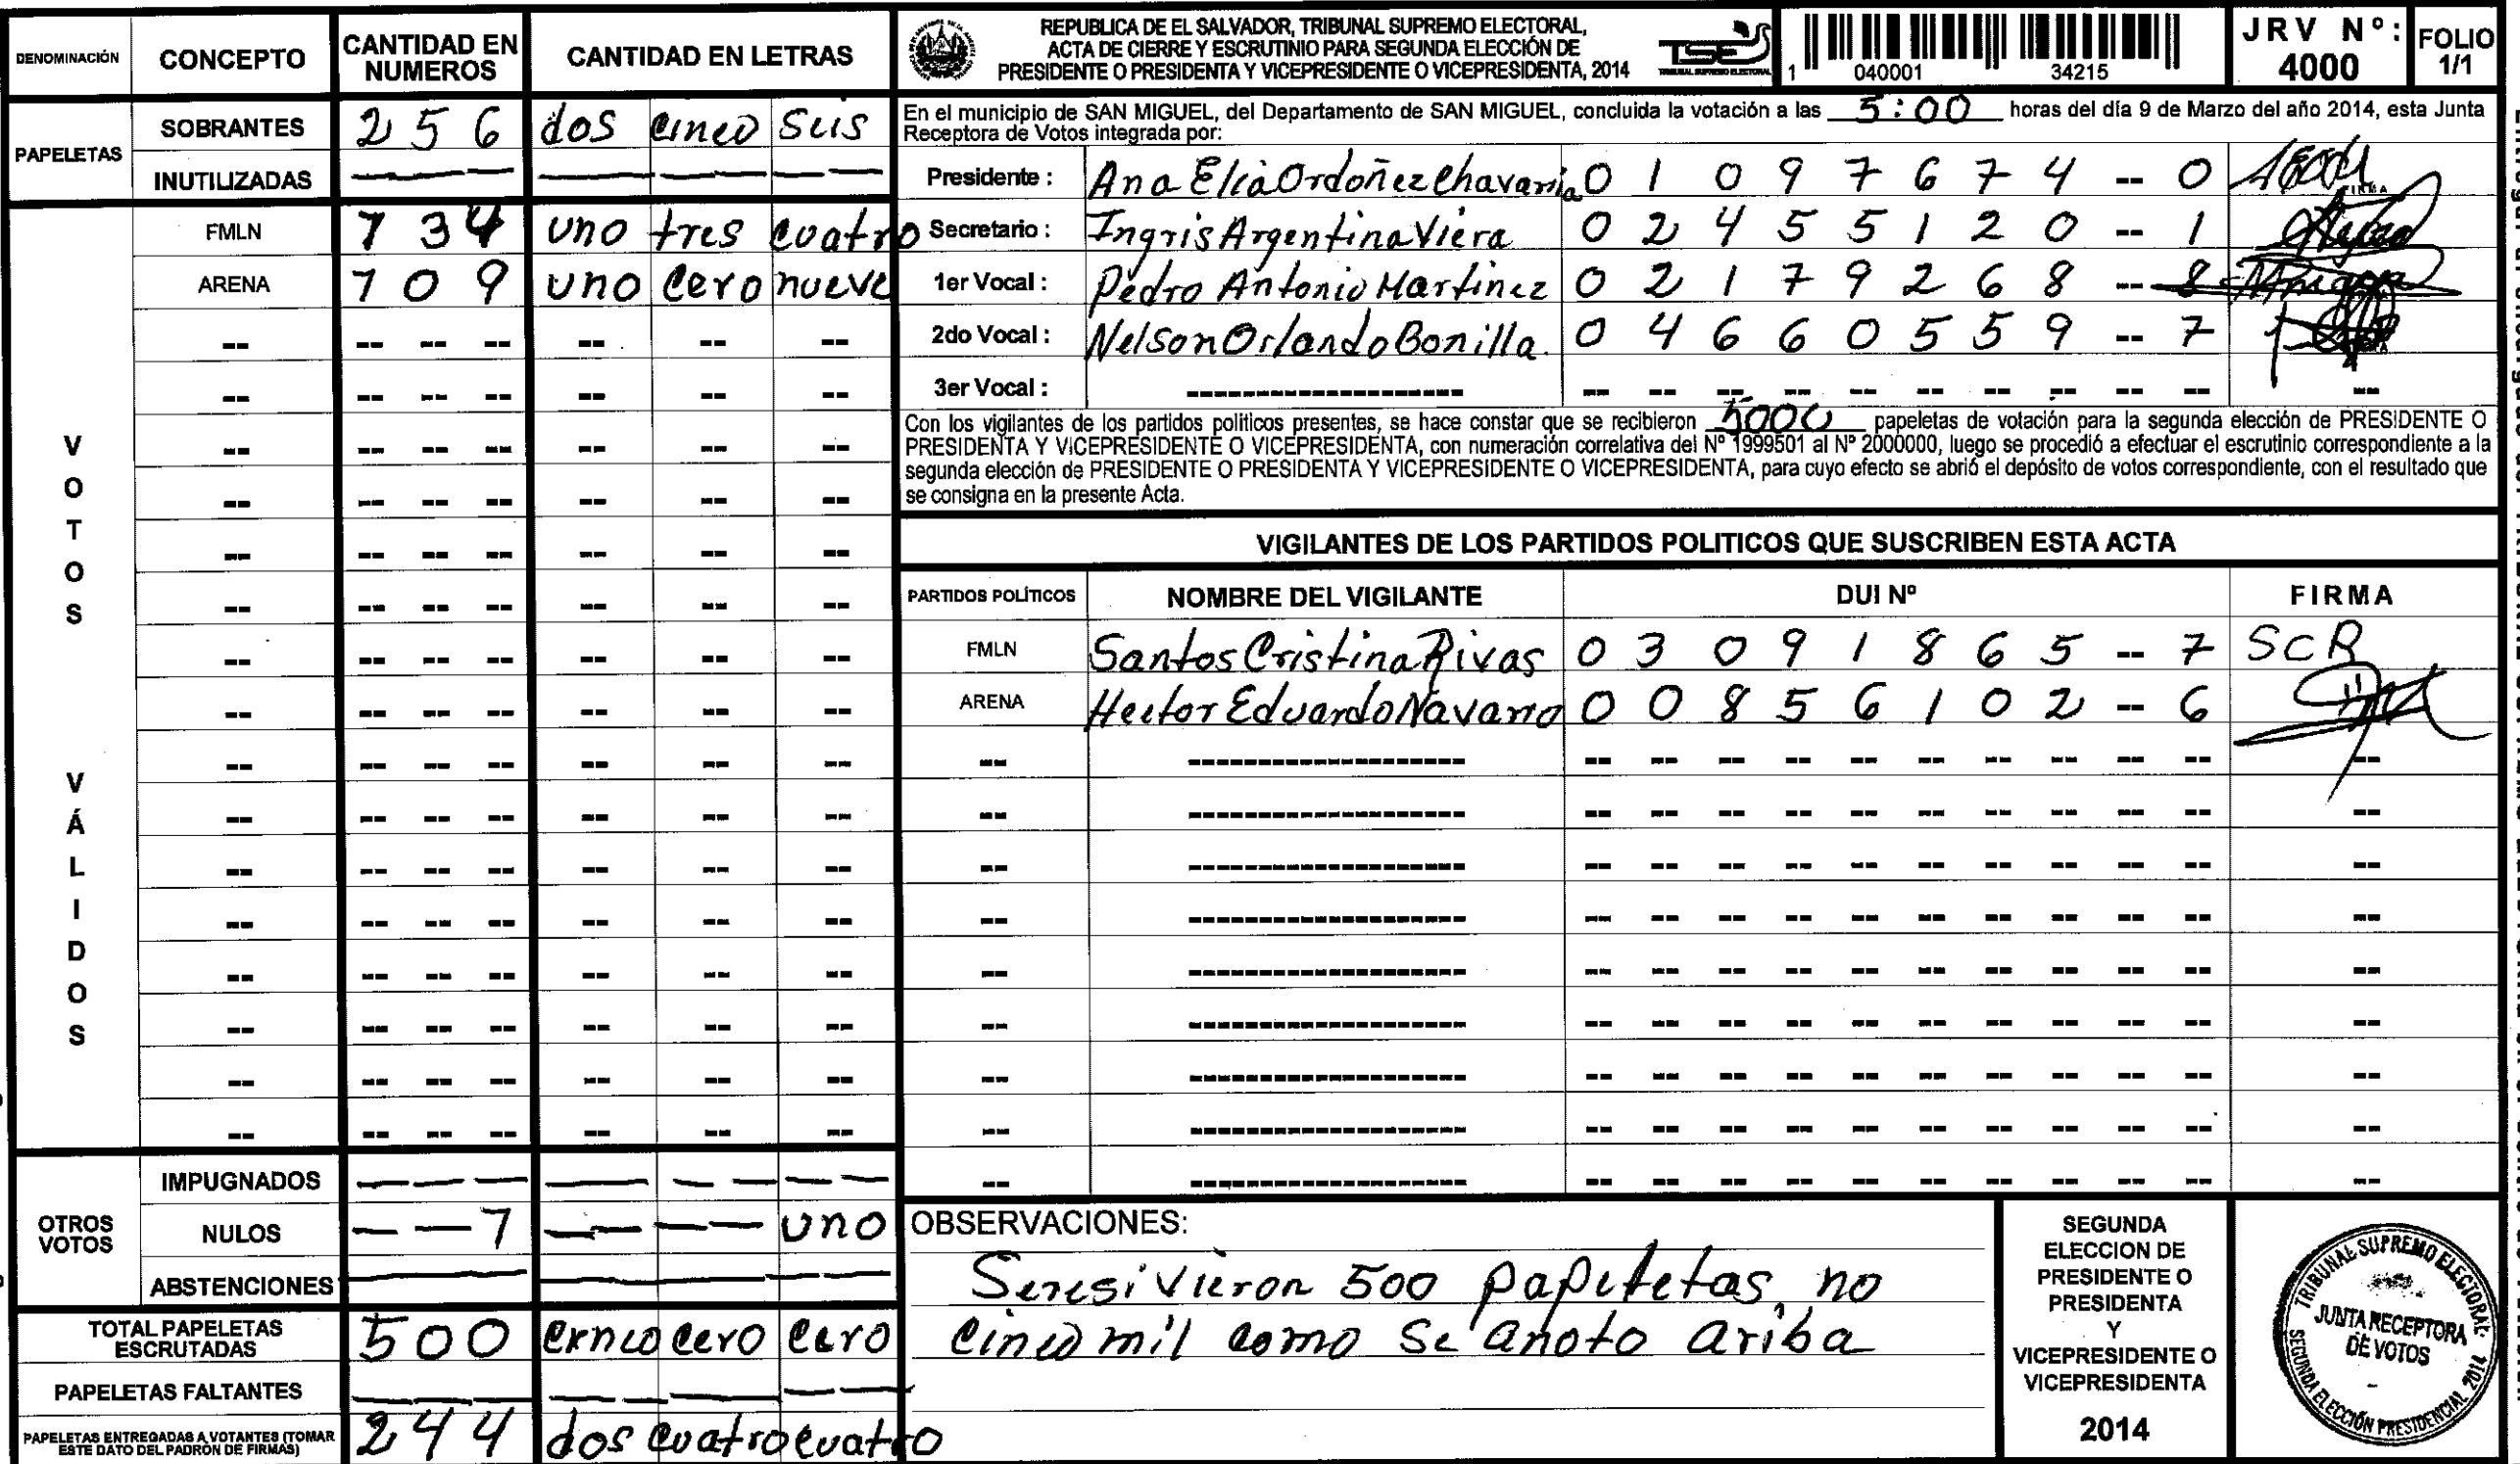 DENOMINACIÓN CONCEPTO CANTIDAD EN NUMEROS CANTIDAD EN LETRAS
PAPELETAS
SOBRANTES 2 5 6 dos cinco seis
INUTILIZADAS
VOTOS VÁLIDOS
FMLN 1 3 4 uno tres cuatro
ARENA 1 0 9 uno cero nueve
OTROS VOTOS
IMPUGNADOS
NULOS 1 uno
ABSTENCIONES
TOTAL PAPELETAS ESCRUTADAS 500 cinco cero cero
PAPELETAS FALTANTES
PAPELETAS ENTREGADAS A VOTANTES (TOMAR ESTE DATO DEL PADRON DE FIRMAS) 244 dos cuatro cuatro
REPUBLICA DE EL SALVADOR, TRIBUNAL SUPREMO ELECTORAL,
ACTA DE CIERRE Y ESCRUTINIO PARA SEGUNDA ELECCIÓN DE
PRESIDENTE O PRESIDENTA Y VICEPRESIDENTE O VICEPRESIDENTA, 2014
TSE
TRIBUNAL SUPREMO ELECTORAL
1 040001 34215
JRV Nº: 4000
FOLIO 1/1
En el municipio de SAN MIGUEL, del Departamento de SAN MIGUEL, concluida la votación a las 5:00 horas del día 9 de Marzo del año 2014, esta Junta
Receptora de Votos integrada por:
Presidente : Ana Elia Ordoñez Chavarria 0 1 0 9 7 6 7 4 -- 0
Secretario : Ingris Argentina Viera 0 2 4 5 5 1 2 0 -- 1
1er Vocal : Pedro Antonio Martinez 0 2 1 7 9 2 6 8 -- 8
2do Vocal : Nelson Orlando Bonilla. 0 4 6 6 0 5 5 9 -- 7
3er Vocal :
Con los vigilantes de los partidos politicos presentes, se hace constar que se recibieron 5000 papeletas de votación para la segunda elección de PRESIDENTE O
PRESIDENTA Y VICEPRESIDENTE O VICEPRESIDENTA, con numeración correlativa del Nº 1999501 al Nº 2000000, luego se procedió a efectuar el escrutinio correspondiente a la
segunda elección de PRESIDENTE O PRESIDENTA Y VICEPRESIDENTE O VICEPRESIDENTA, para cuyo efecto se abrió el depósito de votos correspondiente, con el resultado que
se consigna en la presente Acta.
VIGILANTES DE LOS PARTIDOS POLITICOS QUE SUSCRIBEN ESTA ACTA
PARTIDOS POLÍTICOS NOMBRE DEL VIGILANTE DUI Nº FIRMA
FMLN Santos Cristina Rivas 0 3 0 9 1 8 6 5 -- 7 SCR
ARENA Hector Eduardo Navarro 0 0 8 5 6 1 0 2 -- 6
OBSERVACIONES:
Seresivieron 500 papeletas, no
cinco mil como se anoto ariba
SEGUNDA
ELECCION DE
PRESIDENTE O
PRESIDENTA
Y
VICEPRESIDENTE O
VICEPRESIDENTA
2014
TRIBUNAL SUPREMO ELECTORAL
JUNTA RECEPTORA
DE VOTOS
SEGUNDA ELECCIÓN PRESIDENCIAL 2014